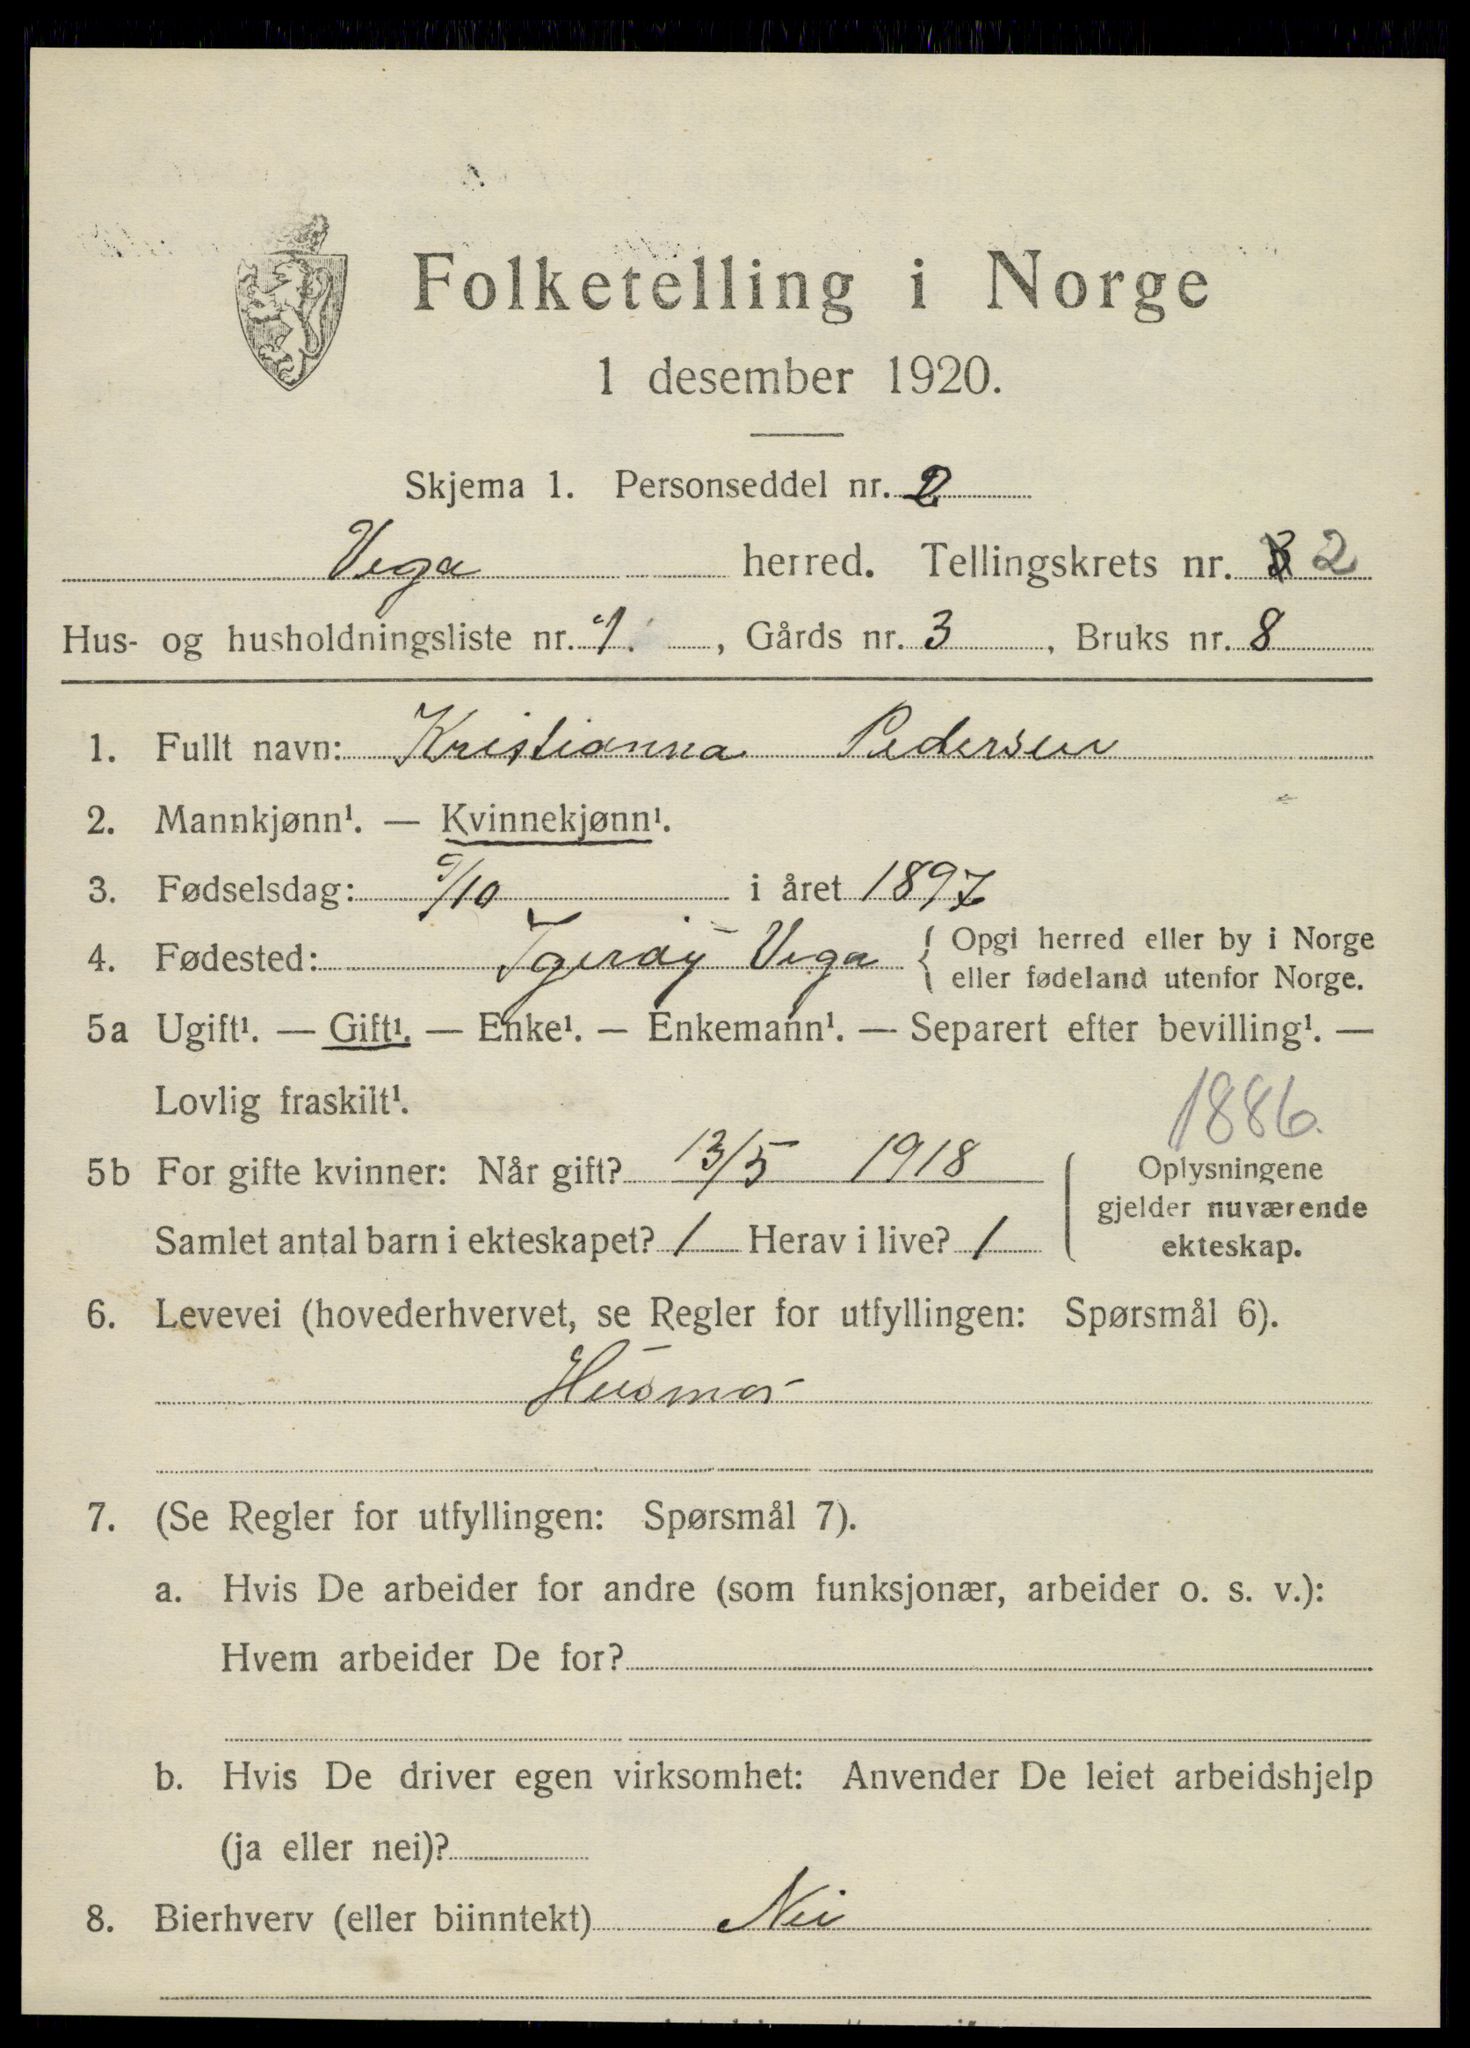 Folketelling i Norge
1 desember 1920.
Skjema 1. Personseddel nr. 2
Vega herred. Tellingskrets nr. 2
Hus- og husholdningsliste nr. 1. , Gårds nr. 3 , Bruks nr. 8
1. Fullt navn: Kristianna Pedersen
2. Mannkjønn¹. — Kvinnekjønn¹.
3. Fødselsdag: /10 i året 1897
4. Fødested: Igerøy Vega { Opgi herred eller by i Norge
eller fødeland utenfor Norge.
5a Ugift¹. — Gift¹. — Enke¹. — Enkemann¹. — Separert efter bevilling¹. —
Lovlig fraskilt¹.
1886.
5b For gifte kvinner: Når gift? 13/5 1918
Samlet antal barn i ekteskapet? 1 Herav i live? 1
Oplysningene
gjelder nuværende
ekteskap.
6. Levevei (hovederhvervet, se Regler for utfyllingen: Spørsmål 6).
Husmor
7. (Se Regler for utfyllingen: Spørsmål 7).
a. Hvis De arbeider for andre (som funksjonær, arbeider o. s. v.):
Hvem arbeider De for?
b. Hvis De driver egen virksomhet: Anvender De leiet arbeidshjelp
(ja eller nei)?
8. Bierhverv (eller biinntekt) Nei